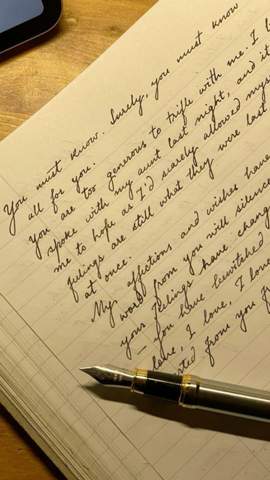 You must know. Surely, you must know
all for you.
you are too generous to trifle with me. I
spoke with my aunt last night, and it
me to hope as I'd scarely allowed my
feelings are still what they were last
at once.
My affections and wishes have
word from you will silence
your feelings have chang
you have bewitched
I love, I love, I love
from you